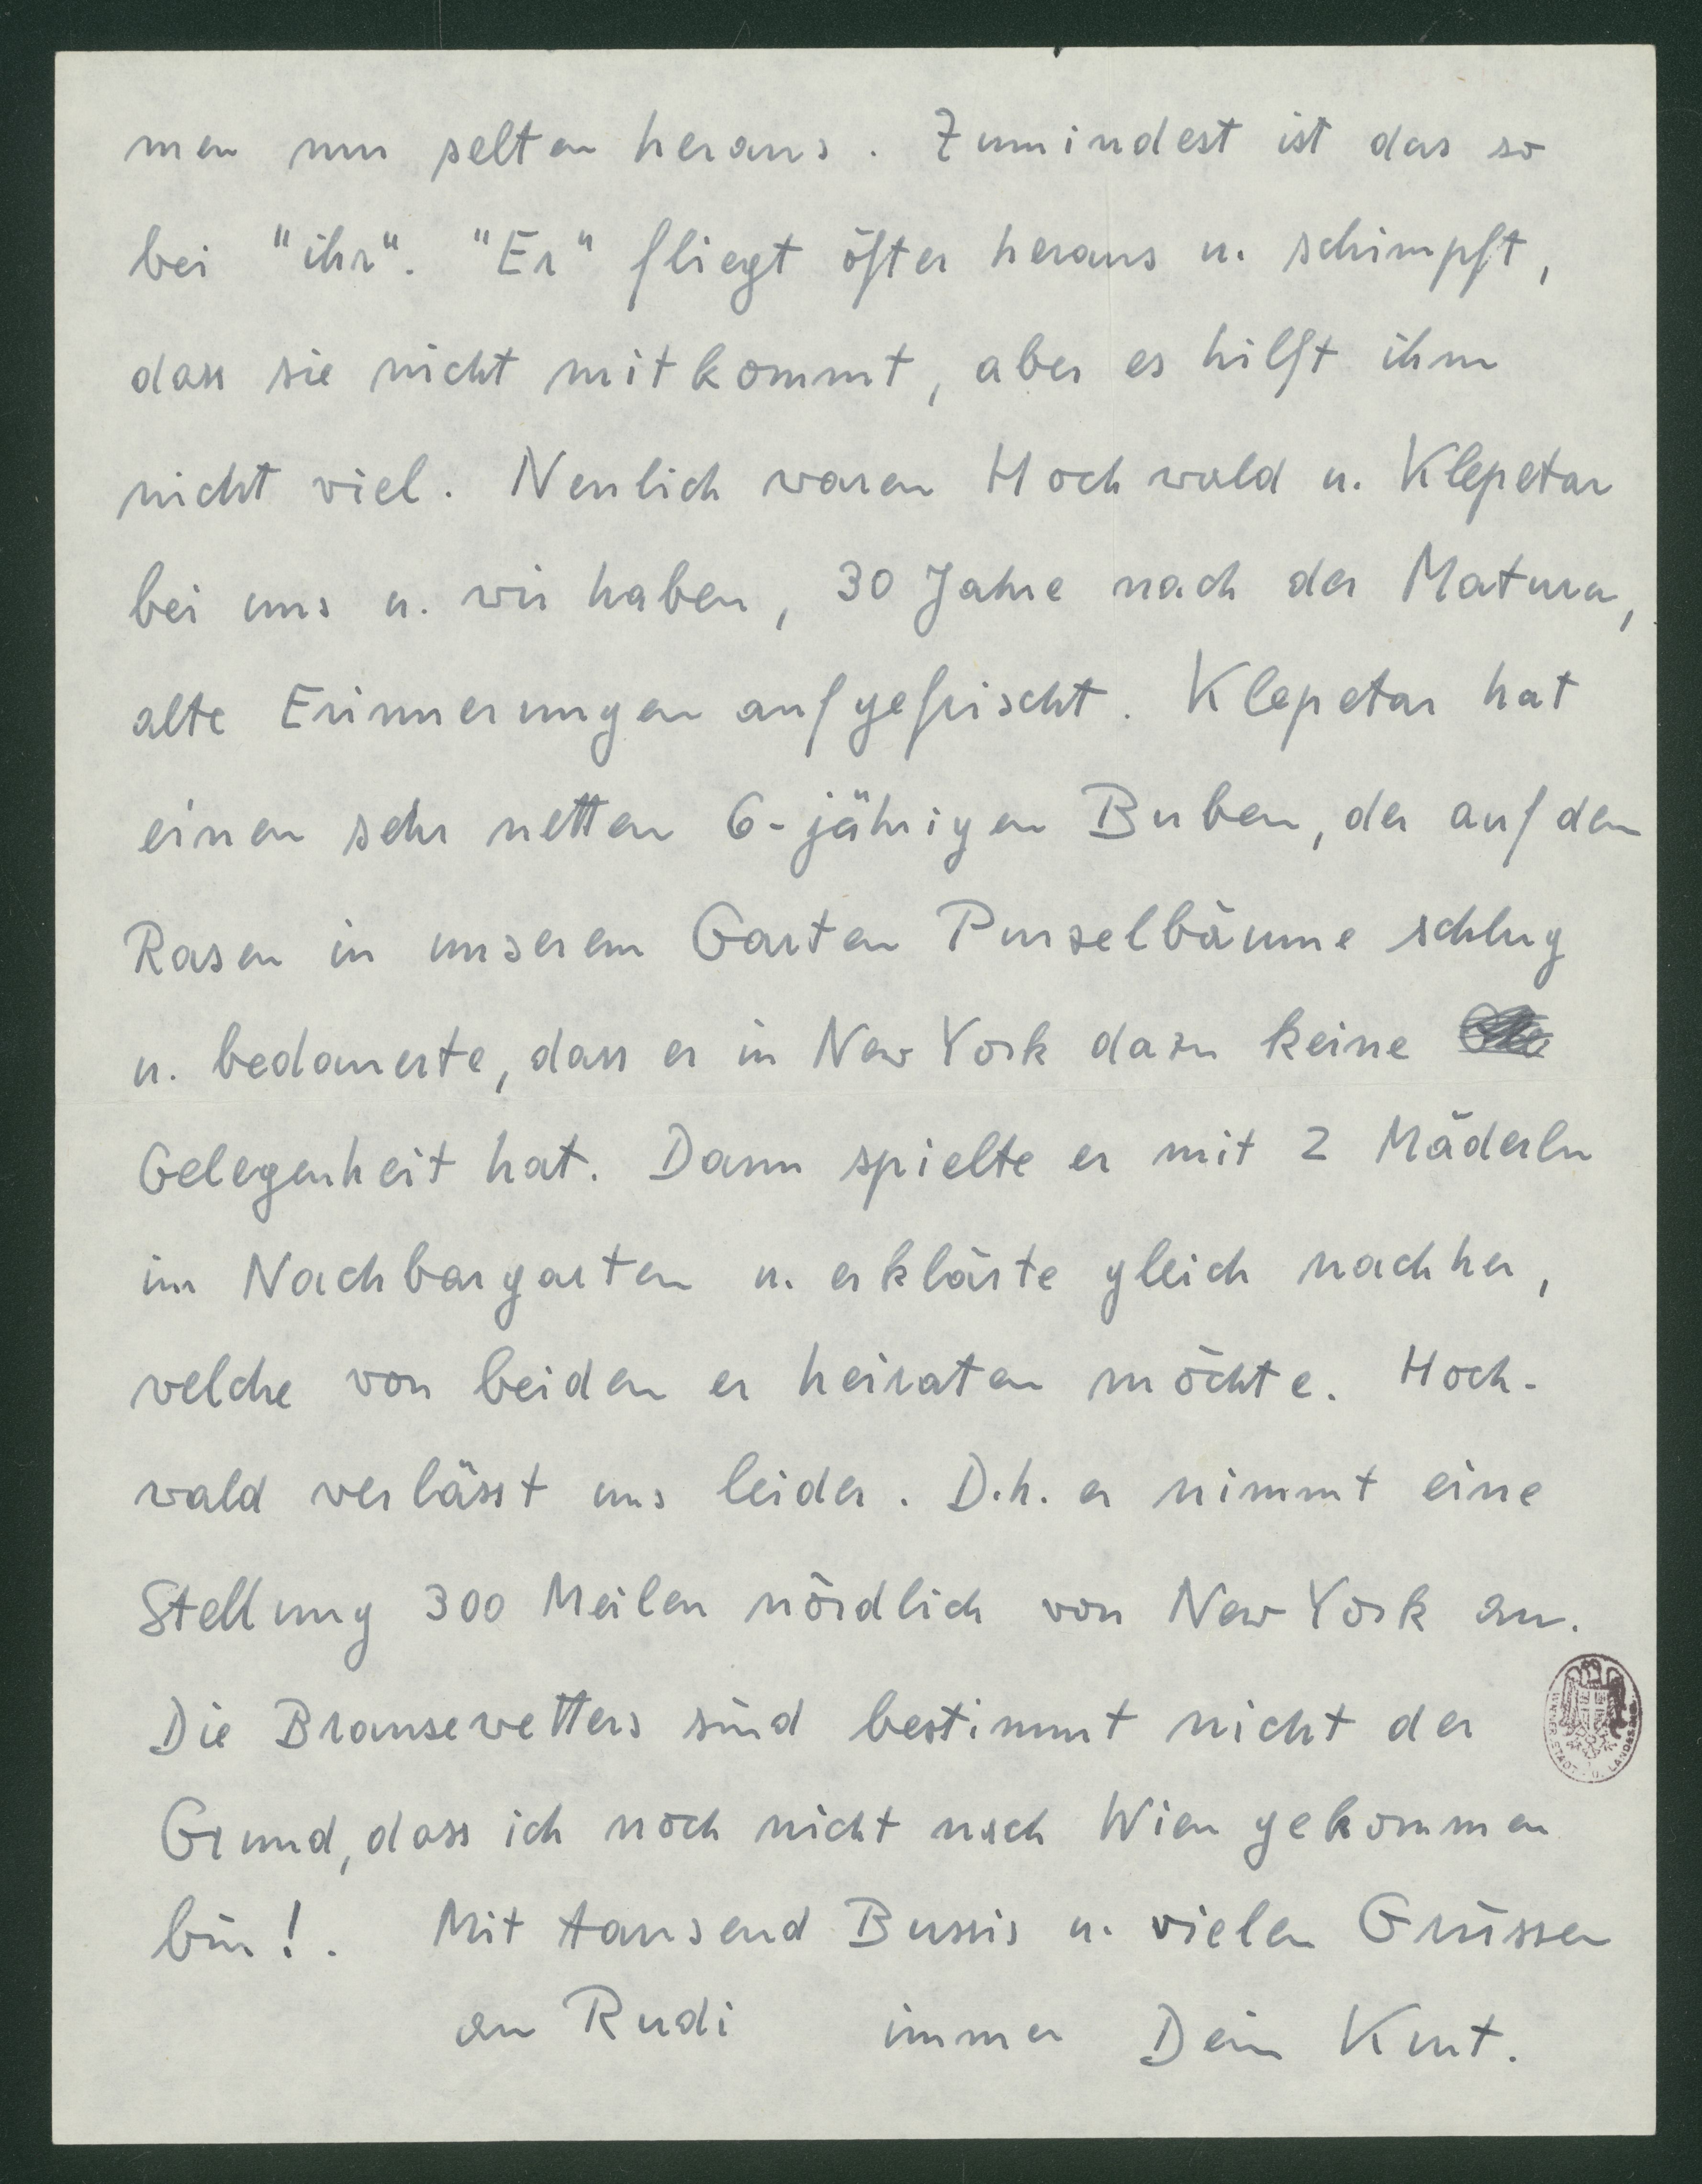 men nur selten heraus. Zumindest ist das so
bei "ihr". "Er" fliegt öfter heraus u. schimpft,
dass sie nicht mitkommt, aber es hilft ihm
nicht viel. Neulich waren Hochwald u. Klepetar
bei uns u. wir haben, 30 Jahre nach der Matura,
alte Erinnerungen aufgefrischt. Klepetar hat
einen sehr netten 6-jährigen Buben, der auf dem
Rasen in unserem Garten Purzelbäume schlug
u. bedauerte, dass er in New York dazu keine
Gelegenheit hat. Dann spielte er mit 2 Mäderln
im Nachbargarten u. erklärte gleich nachher,
welche von beiden er heiraten möchte. Hoch-
wald verlässt uns leider. D.h. er nimmt eine
Stellung 300 Meilen nördlich von New York an.
Die Brausewetters sind bestimmt nicht der
Grund, dass ich noch nicht nach Wien gekommen
bin!. Mit tausend Bussis u. vielen Grüssen
an Rudi immer Dein Kurt.